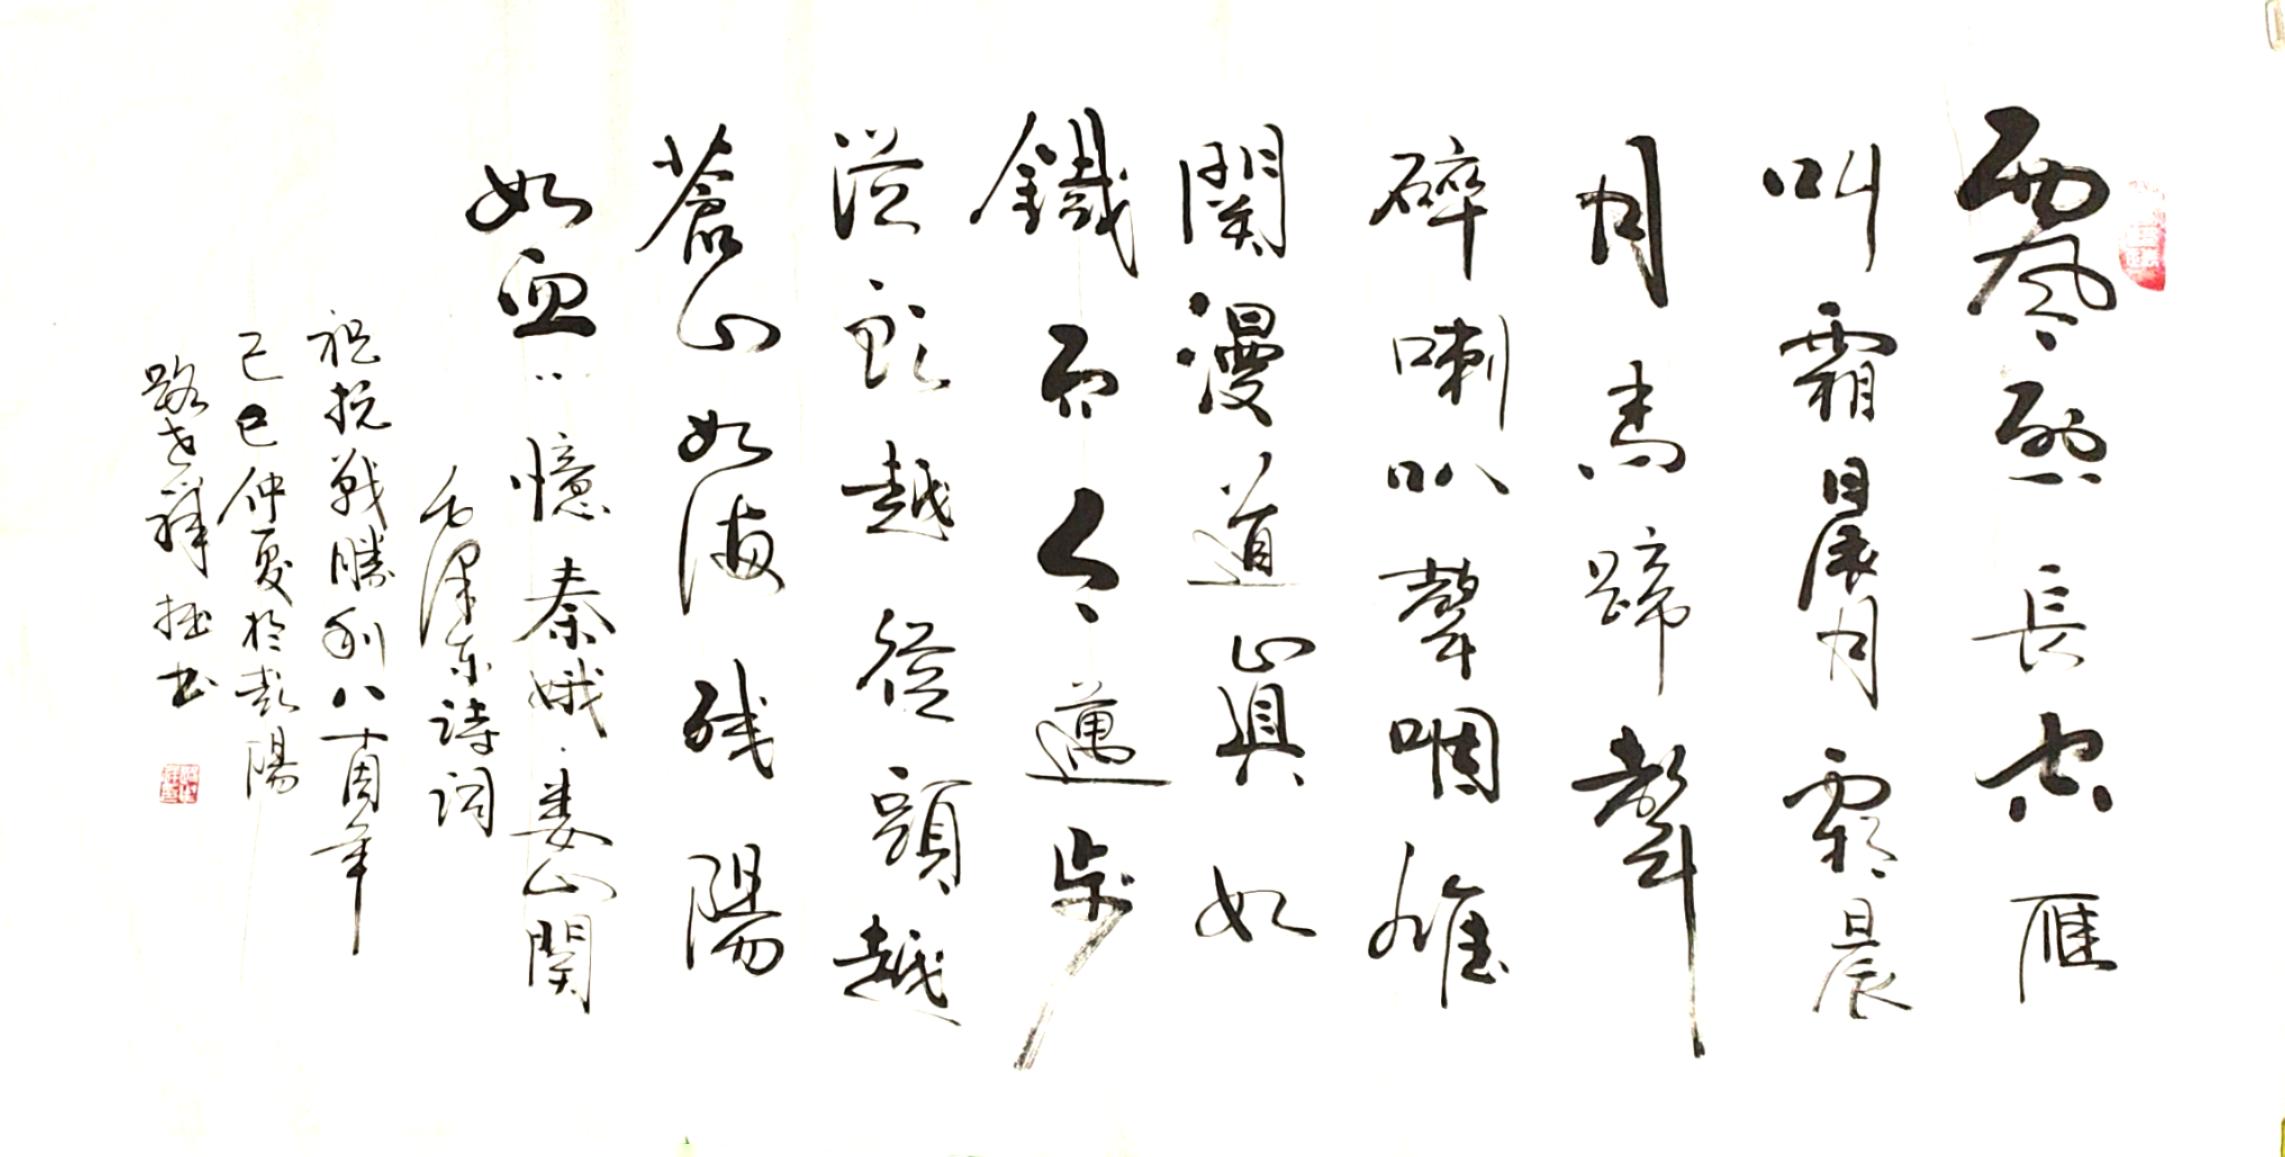 西風烈長空雁
叫霜晨月霜晨
月馬蹄聲
碎喇叭聲咽雄
関漫道真如
鐵而今邁步
從頭越從頭越
蒼山如海残陽
如血：憶秦娥·娄山関
毛澤东詩詞
祝抗戰勝利八十周年
乙巳仲夏於彭陽
路祥拙书